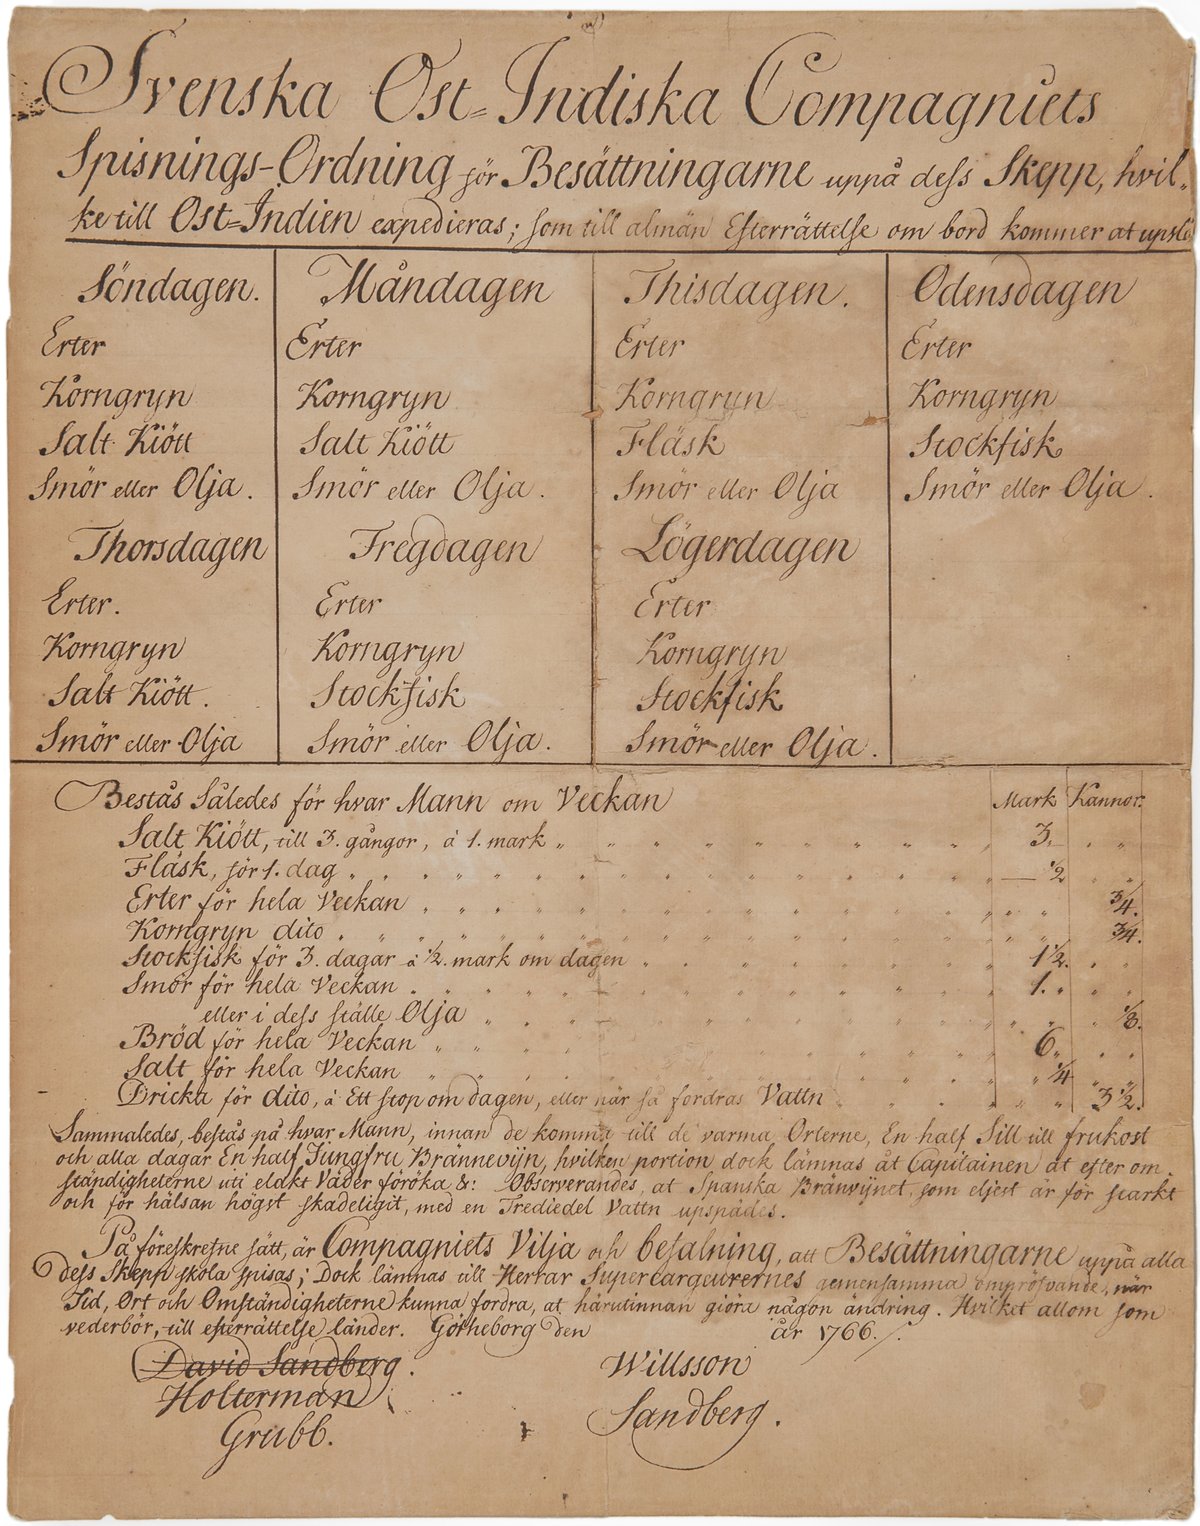 Svenska Ost=Indiska Compagniets
Spisnings-Ordning för Besättningarne uppå dess Skepp, hvil=
ke till Ost=Indien expedieras; som till almän Efterrättelse om bord kommer at upslå
Söndagen.
Erter
Korngryn
Salt Kiött
Smör eller Olja.
Måndagen
Erter
Korngryn
Salt Kiött
Smör eller Olja.
Thisdagen.
Erter
Korngryn
Fläsk
Smör eller Olja
Odensdagen
Erter
Korngryn
Stockfisk
Smör eller Olja.
Thorsdagen
Erter.
Korngryn
Salt Kiött.
Smör eller Olja
Fregdagen
Erter
Korngryn
Stockfisk
Smör eller Olja.
Lögerdagen
Erter
Korngryn
Stockfisk
Smör eller Olja.
Bestås Således för hvar Mann om Veckan Mark Kannor.
Salt Kiött, till 3. gångor, á 1. mark 3.
Fläsk, för 1. dag ½
Erter för hela Veckan ¾.
Korngryn dito ¾.
Stockfisk för 3. dagar á ½. mark om dagen 1½.
Smör för hela Veckan 1.
eller i dess ställe Olja ⅛.
Bröd för hela Veckan 6
Salt för hela Veckan ¼
Dricka för dito, á Ett stop om dagen, eller när så fordras Vattn 3½.
Sammaledes, bestås på hvar Mann, innan de komma till de varma Orterne, En half Sill till frukost
och alla dagar En half Jungfru Brännevijn, hvilken portion dock lämnas åt Capitainen at efter om=
ständigheterne uti elakt Väder föröka &: Observerandes, at Spanska Bränvijnet, som eljest är för starkt
och för hälsan högst skadeligit, med en Trediedel Vattn upspädes.
På föreskrefne sätt, är Compagniets Vilja och befalning, att Besättningarne uppå alla
dess Skepp skola spisas; Dock lämnas till Herrar Supercargeurernes gemensamma ompröfvande, när
Tid, Ort och Omständigheterne kunna fordra, at härutinnan giöra någon ändring. Hvilket allom som
vederbör, till efterrättelse länder. Götheborg den år 1766.
David Sandberg. Willsson
Holterman Sandberg.
Grubb.